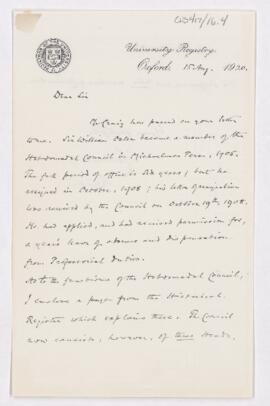 University Registry,
Oxford. 15 Aug. 1920.
Dear Sir
Mr Craig has passed on your letter
to me. Sir William Osler became a member of the
Hebdomadal Council in Michaelmas Term, 1905.
The full period of office is six years; but he
resigned in October, 1908; his letter of resignation
was received by the Council on October 19th 1908.
He had applied, and had received permission for,
a year's leave of absence and dispensation
from Professorial duties.
As to the functions of the Hebdomadal Council,
I enclose a page from the Historical
Register which explains these. The Council
now consists, however, of three Heads,